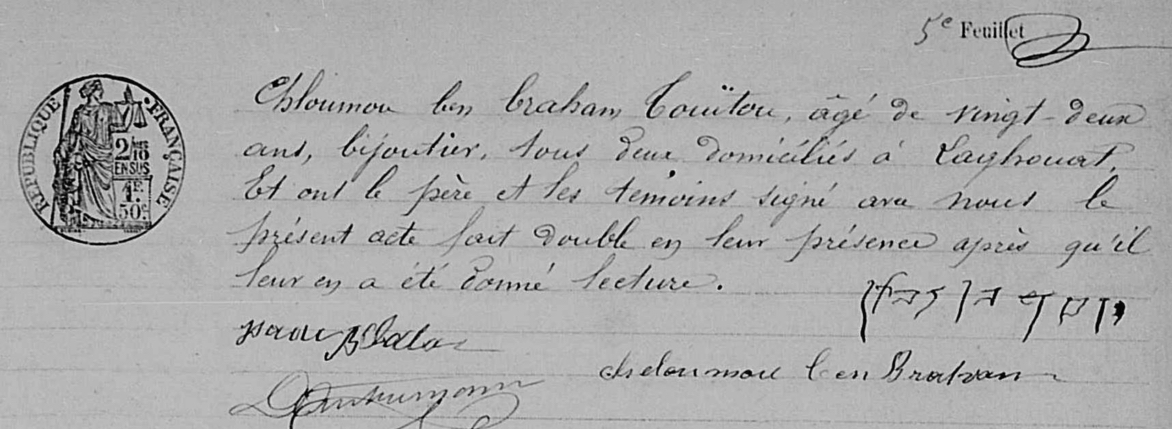 5e Feuillet
RÉPUBLIQUE FRANÇAISE
2/10 EN SUS
1F. 50c.
Chloumou ben Braham Touïtou, âgé de vingt-deux
ans, bijoutier, tous deux domiciliés à Laghouat.
Et ont le père et les témoins signé avec nous le
présent acte fait double en leur présence après qu'il
leur en a été donné lecture.
Isaac
cheloumou ben Braham